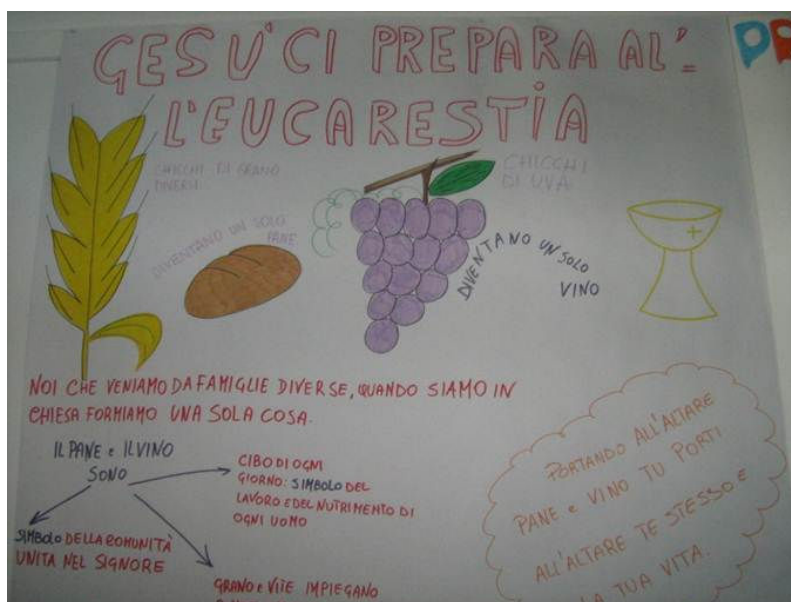 GESU' CI PREPARA AL'=
L'EUCARESTIA
CHICCHI DI GRANO
DIVERSI
DIVENTANO UN SOLO
PANE
CHICCHI
DI UVA
DIVENTANO UN SOLO
VINO
NOI CHE VENIAMO DA FAMIGLIE DIVERSE, QUANDO SIAMO IN
CHIESA FORMIAMO UNA SOLA COSA.
IL PANE e IL VINO
SONO
CIBO DI OGNI
GIORNO: SIMBOLO DEL
LAVORO E DEL NUTRIMENTO DI
OGNI UOMO
SIMBOLO DELLA COMUNITÀ
UNITA NEL SIGNORE
GRANO e VITE IMPIEGANO
PORTANDO ALL'ALTARE
PANE e VINO TU PORTI
ALL'ALTARE TE STESSO E
LA TUA VITA.
PR